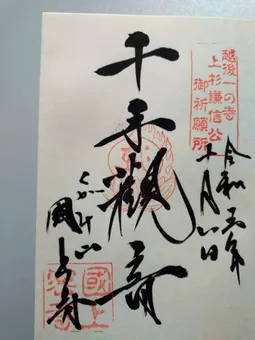 越後一の寺
上杉謙信公
御祈願所
令和元年
十月六日
千手観音
くがみ山
國上寺